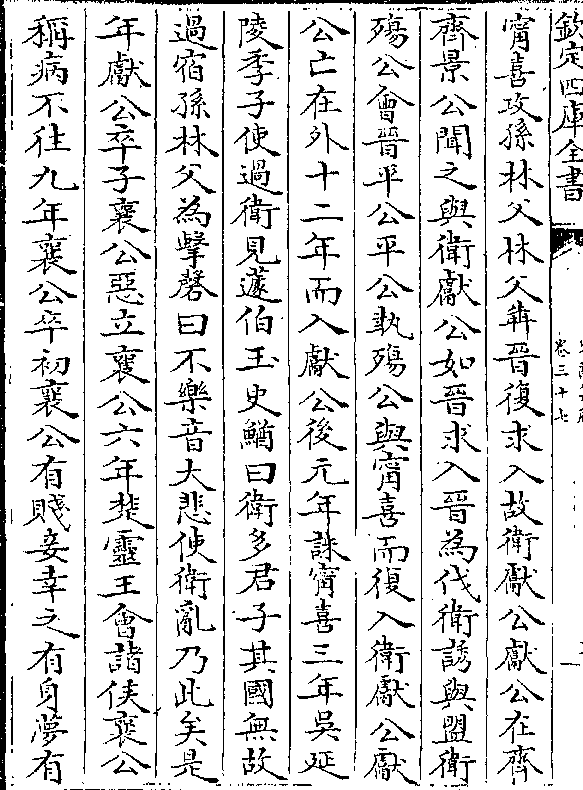 欽定四庫全書
卷三十七
甯喜攻孫林父林父犇晉復求入故衛獻公獻公在齊
齊景公聞之與衛獻公如晉求入晉為伐衛誘與盟衛
殤公會晉平公平公執殤公與甯喜而復入衛獻公獻
公亡在外十二年而入獻公後元年誅甯喜三年吳延
陵季子使過衛見蘧伯玉史鰌曰衛多君子其國無故
過宿孫林父為擊磬曰不樂音大悲使衛亂乃此矣是
年獻公卒子襄公惡立襄公六年楚靈王會諸侯襄公
稱病不往九年襄公卒初襄公有賤妾幸之有身夢有